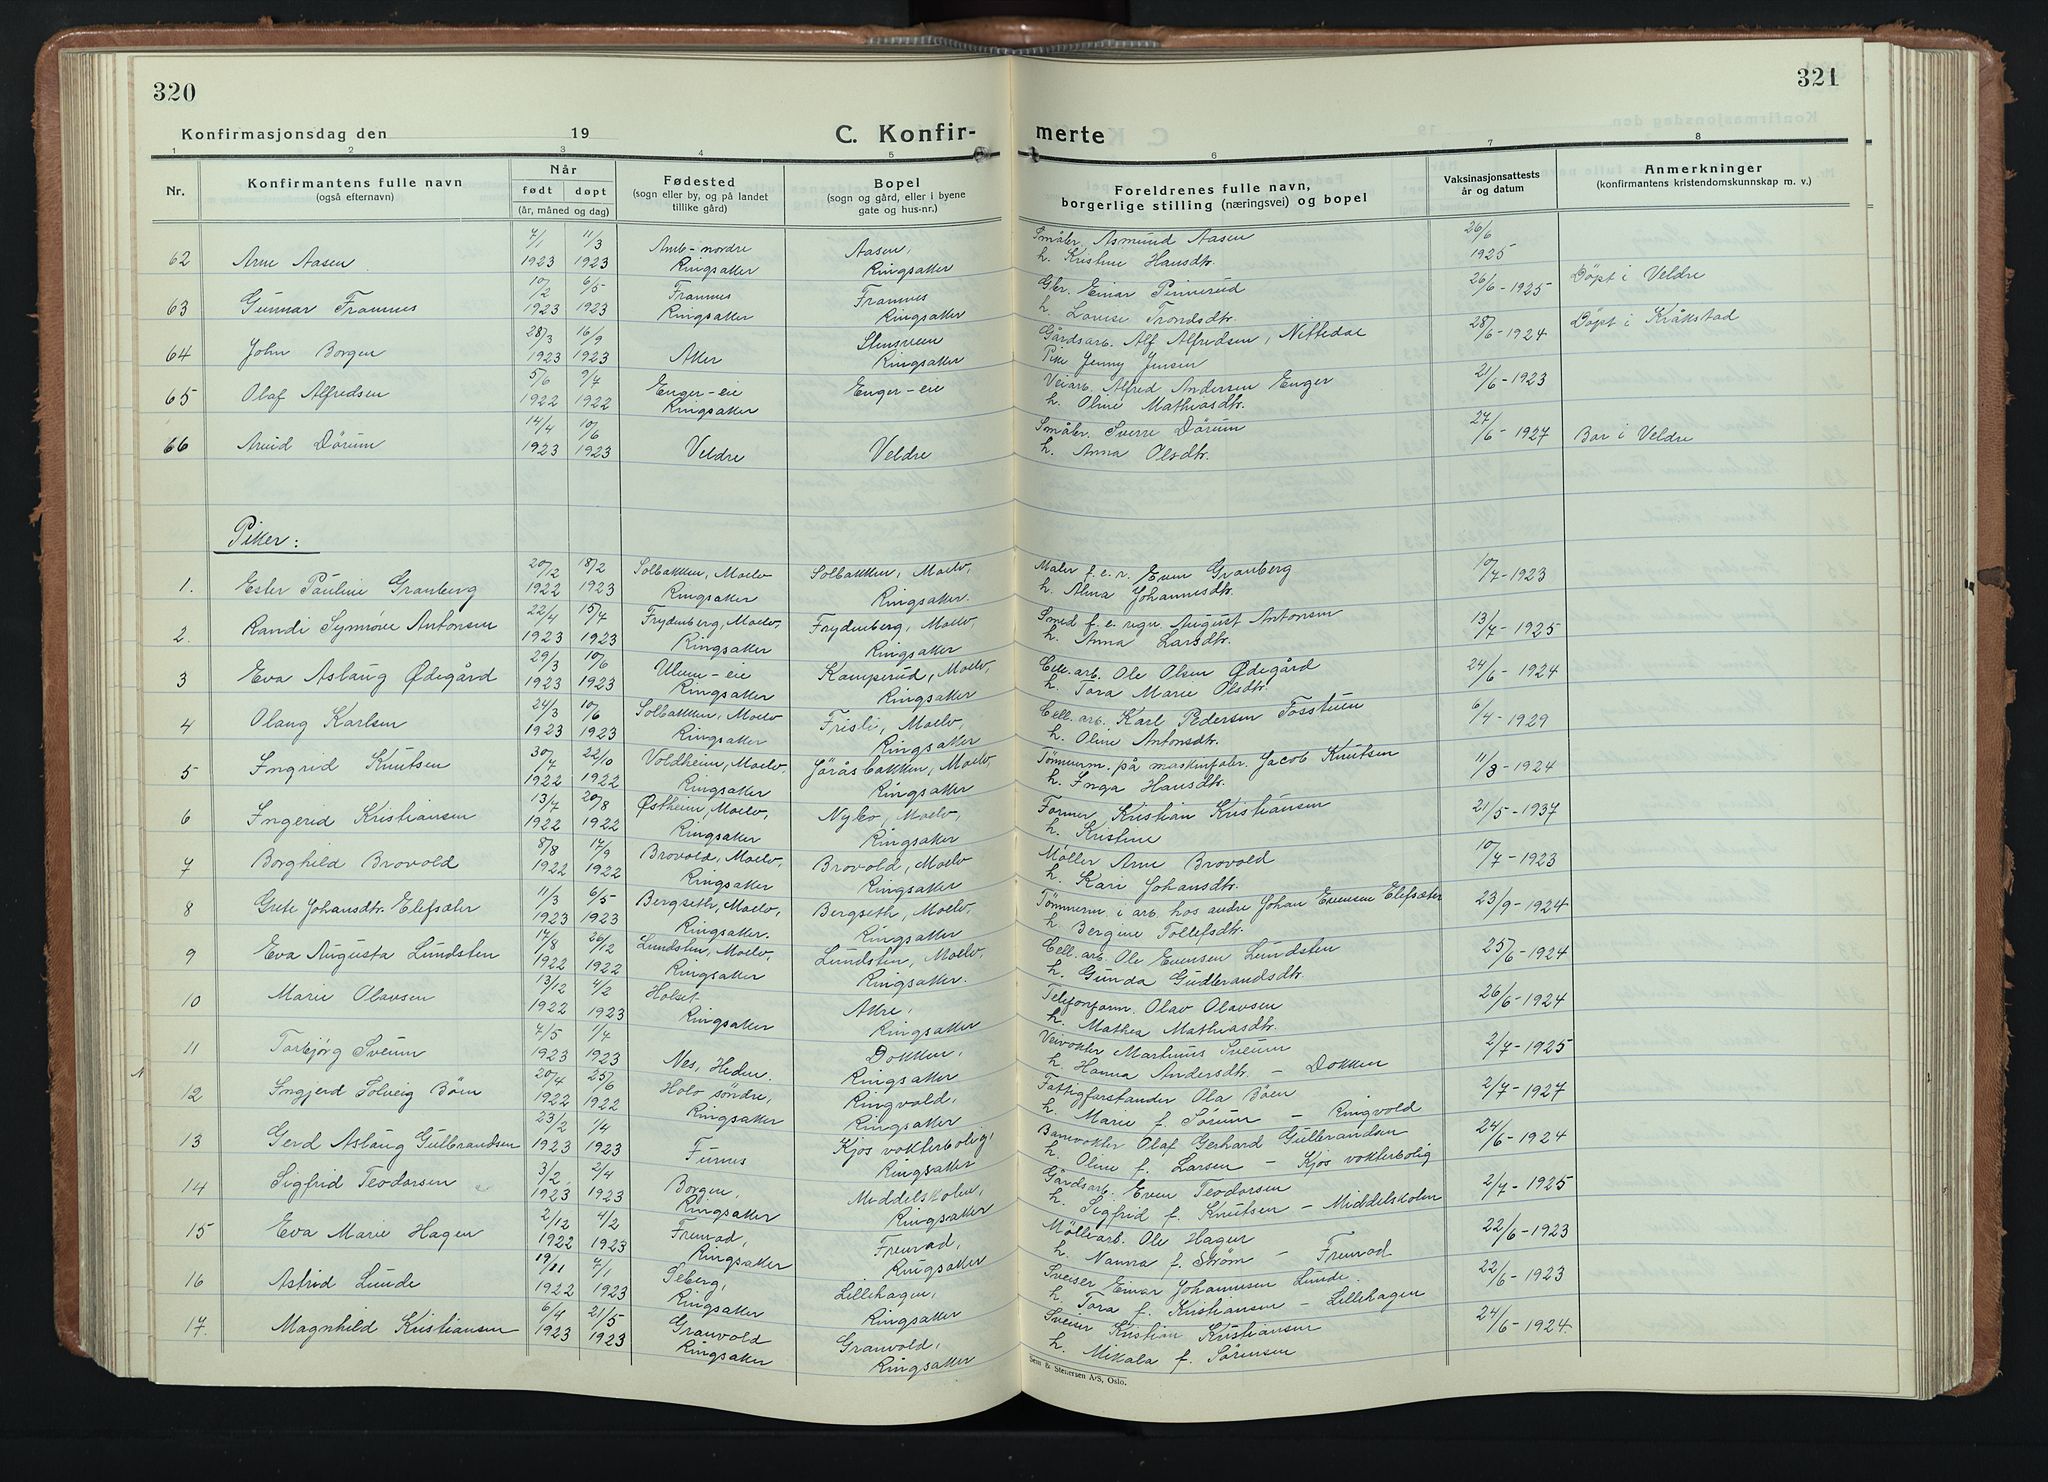 320
321
Konfirmasjonsdag den 19
C. Konfir-
merte
1 2 3 4 5 6 7 8
Nr.
Konfirmantens fulle navn
(også efternavn)
Når
født døpt
(år, måned og dag)
Fødested
(sogn eller by, og på landet
tillike gård)
Bopel
(sogn og gård, eller i byene
gate og hus-nr.)
Foreldrenes fulle navn,
borgerlige stilling (næringsvei) og bopel
Vaksinasjonsattests
år og datum
Anmerkninger
(konfirmantens kristendomskunnskap m. v.)
7/1 11/3 Amb-nordre Aasen, Småbr. Asmund Aasen 26/6
62 Arne Aasen 1923 1923 Ringsaker Ringsaker h. Kristine Hansdtr. 1925
10/2 6/5 Framnes Framnes Gbr. Einar Pinnerud 26/6-1925 Döpt i Veldre
63 Gunnar Framnes 1923 1923 Ringsaker Ringsaker h. Lovise Trondsdtr.
28/3 16/9 Stensveen Gårdsarb. Alf Alfredsen, Nittedal 28/6-1924 Döpt i Kråkstad
64 John Borgen 1923 1923 Aker Ringsaker Pike Jenny Jensen
5/6 9/7 Enger-eie Enger-eie Veiarb. Alfred Andersen Enger 21/6-1923
65 Olaf Alfredsen 1922 1922 Ringsaker h. Oline Mathiasdtr.
14/4 10/6 Småbr. Sverre Dörum 27/6-1927 Bor i Veldre
66 Arvid Dörum 1923 1923 Veldre Veldre h. Anna Olsdtr.
Piker:
20/12 18/2 Solbakken, Moelv Solbakken, Moelv, Maler f.e.r. Even Granberg 10/7-1923
1. Ester Pauline Granberg 1922 1923 Ringsaker Ringsaker. h. Alma Johannesdtr.
22/4 15/7 Frydenberg, Moelv, Frydenberg, Moelv, Smed f.e. regn August Antonsen 13/7-1925
2. Randi Synnöve Antonsen 1923 1923 Ringsaker Ringsaker h. Anna Larsdtr.
29/3 10/6 Ulven-eie Kamperud, Moelv, Cell.arb. Ole Olsen Ødegård 24/6-1924
3 Eva Aslaug Ødegård 1923 1923 Ringsaker Ringsaker h. Tora Marie Olsdtr.
24/3 10/6 Solbakken, Moelv Frisli, Moelv, Cell. arb. Karl Pedersen Fosstuen 6/4-1929
4 Olaug Karlsen 1923 1923 Ringsaker Ringsaker h. Oline Antonsdtr.
30/7 22/10 Voldheim, Moelv, Jöråsbakken, Moelv, Tömmerm. på maskinfabr. Jacob Knutsen 11/3-1924
5 Ingrid Knutsen 1922 1922 Ringsaker Ringsaker h. Inga Hansdtr.
13/7 20/8 Østheim, Moelv, Nybo, Moelv, Former Kristian Kristiansen 21/5-1937
6 Ingerid Kristiansen 1922 1922 Ringsaker Ringsaker h. Kristine
8/8 17/9 Brovold, Moelv, Brovold, Moelv Möller Arne Brovold 10/7-1923
7 Borghild Brovold 1922 1922 Ringsaker Ringsaker h. Kari Johansdtr.
11/3 6/5 Bergseth, Moelv, Bergseth, Moelv, Tömmerm. i arb. hos andre Johan Evensen Elefsæter 23/9-1924
8 Grete Johansdtr. Elefsæter 1923 1923 Ringsaker. Ringsaker h. Bergine Tollefsdtr.
17/8 26/12 Lundsten, Moelv, Lundsten, Moelv, Cell. arb. Ole Evensen Lundsten 25/6-1924
9 Eva Augusta Lundsten 1922 1922 Ringsaker Ringsaker. h. Gunda Gudbrandsdtr.
13/12 4/2 Holset Akre, Telefonform. Olav Olavsen 26/6-1924
10 Marie Olavsen 1922 1923 Ringsaker Ringsaker h. Mathea Mathiasdtr.
7/5 1/4 Dokken, Veivokter Martinus Sveum 2/7-1925
11 Torbjörg Sveum 1923 1923 Nes, Hedm. Ringsaker h. Hanna Andersdtr. - Dokken
20/4 25/6 Holo söndre, Ringvold, Fattigforstander Ola Böen 2/7-1927
12 Ingjerd Solveig Böen 1922 1922 Ringsaker Ringsaker h. Marie f. Sörum - Ringvold
23/2 1/4 Kjos vokterbolig, Banevokter Olaf Gerhard Gulbrandsen 24/6-1924
13 Gerd Aslaug Gulbrandsen 1923 1923 Furnes Ringsaker h. Oline f. Larsen - Kjos vokterbolig
3/2 2/4 Borgen, Middelskolen, Gårdsarb. Even Teodorsen 2/7-1925
14 Sigfrid Teodorsen 1923 1923 Ringsaker Ringsaker h. Sigfrid f. Knutsen - Middelskolen
2/12 4/2 Fremad, Fremad, Möllearb. Ole Hagen 22/6-1923
15 Eva Marie Hagen 1922 1923 Ringsaker Ringsaker h. Nanna f. Ström - Fremad
19/11 7/1 Seberg, Lillehagen, Sveiser Einar Johannesen Lunde. 22/6-1923
16 Astrid Lunde 1922 1923 Ringsaker Ringsaker h. Tora f. Kristiansen - Lillehagen
6/4 21/5 Granvold Granvold, Sveiser Kristian Kristiansen 24/6-1924.
17. Magnhild Kristiansen 1923 1923 Ringsaker Ringsaker h. Mikala f. Sörensen
Sem & Stenersen A/S, Oslo.